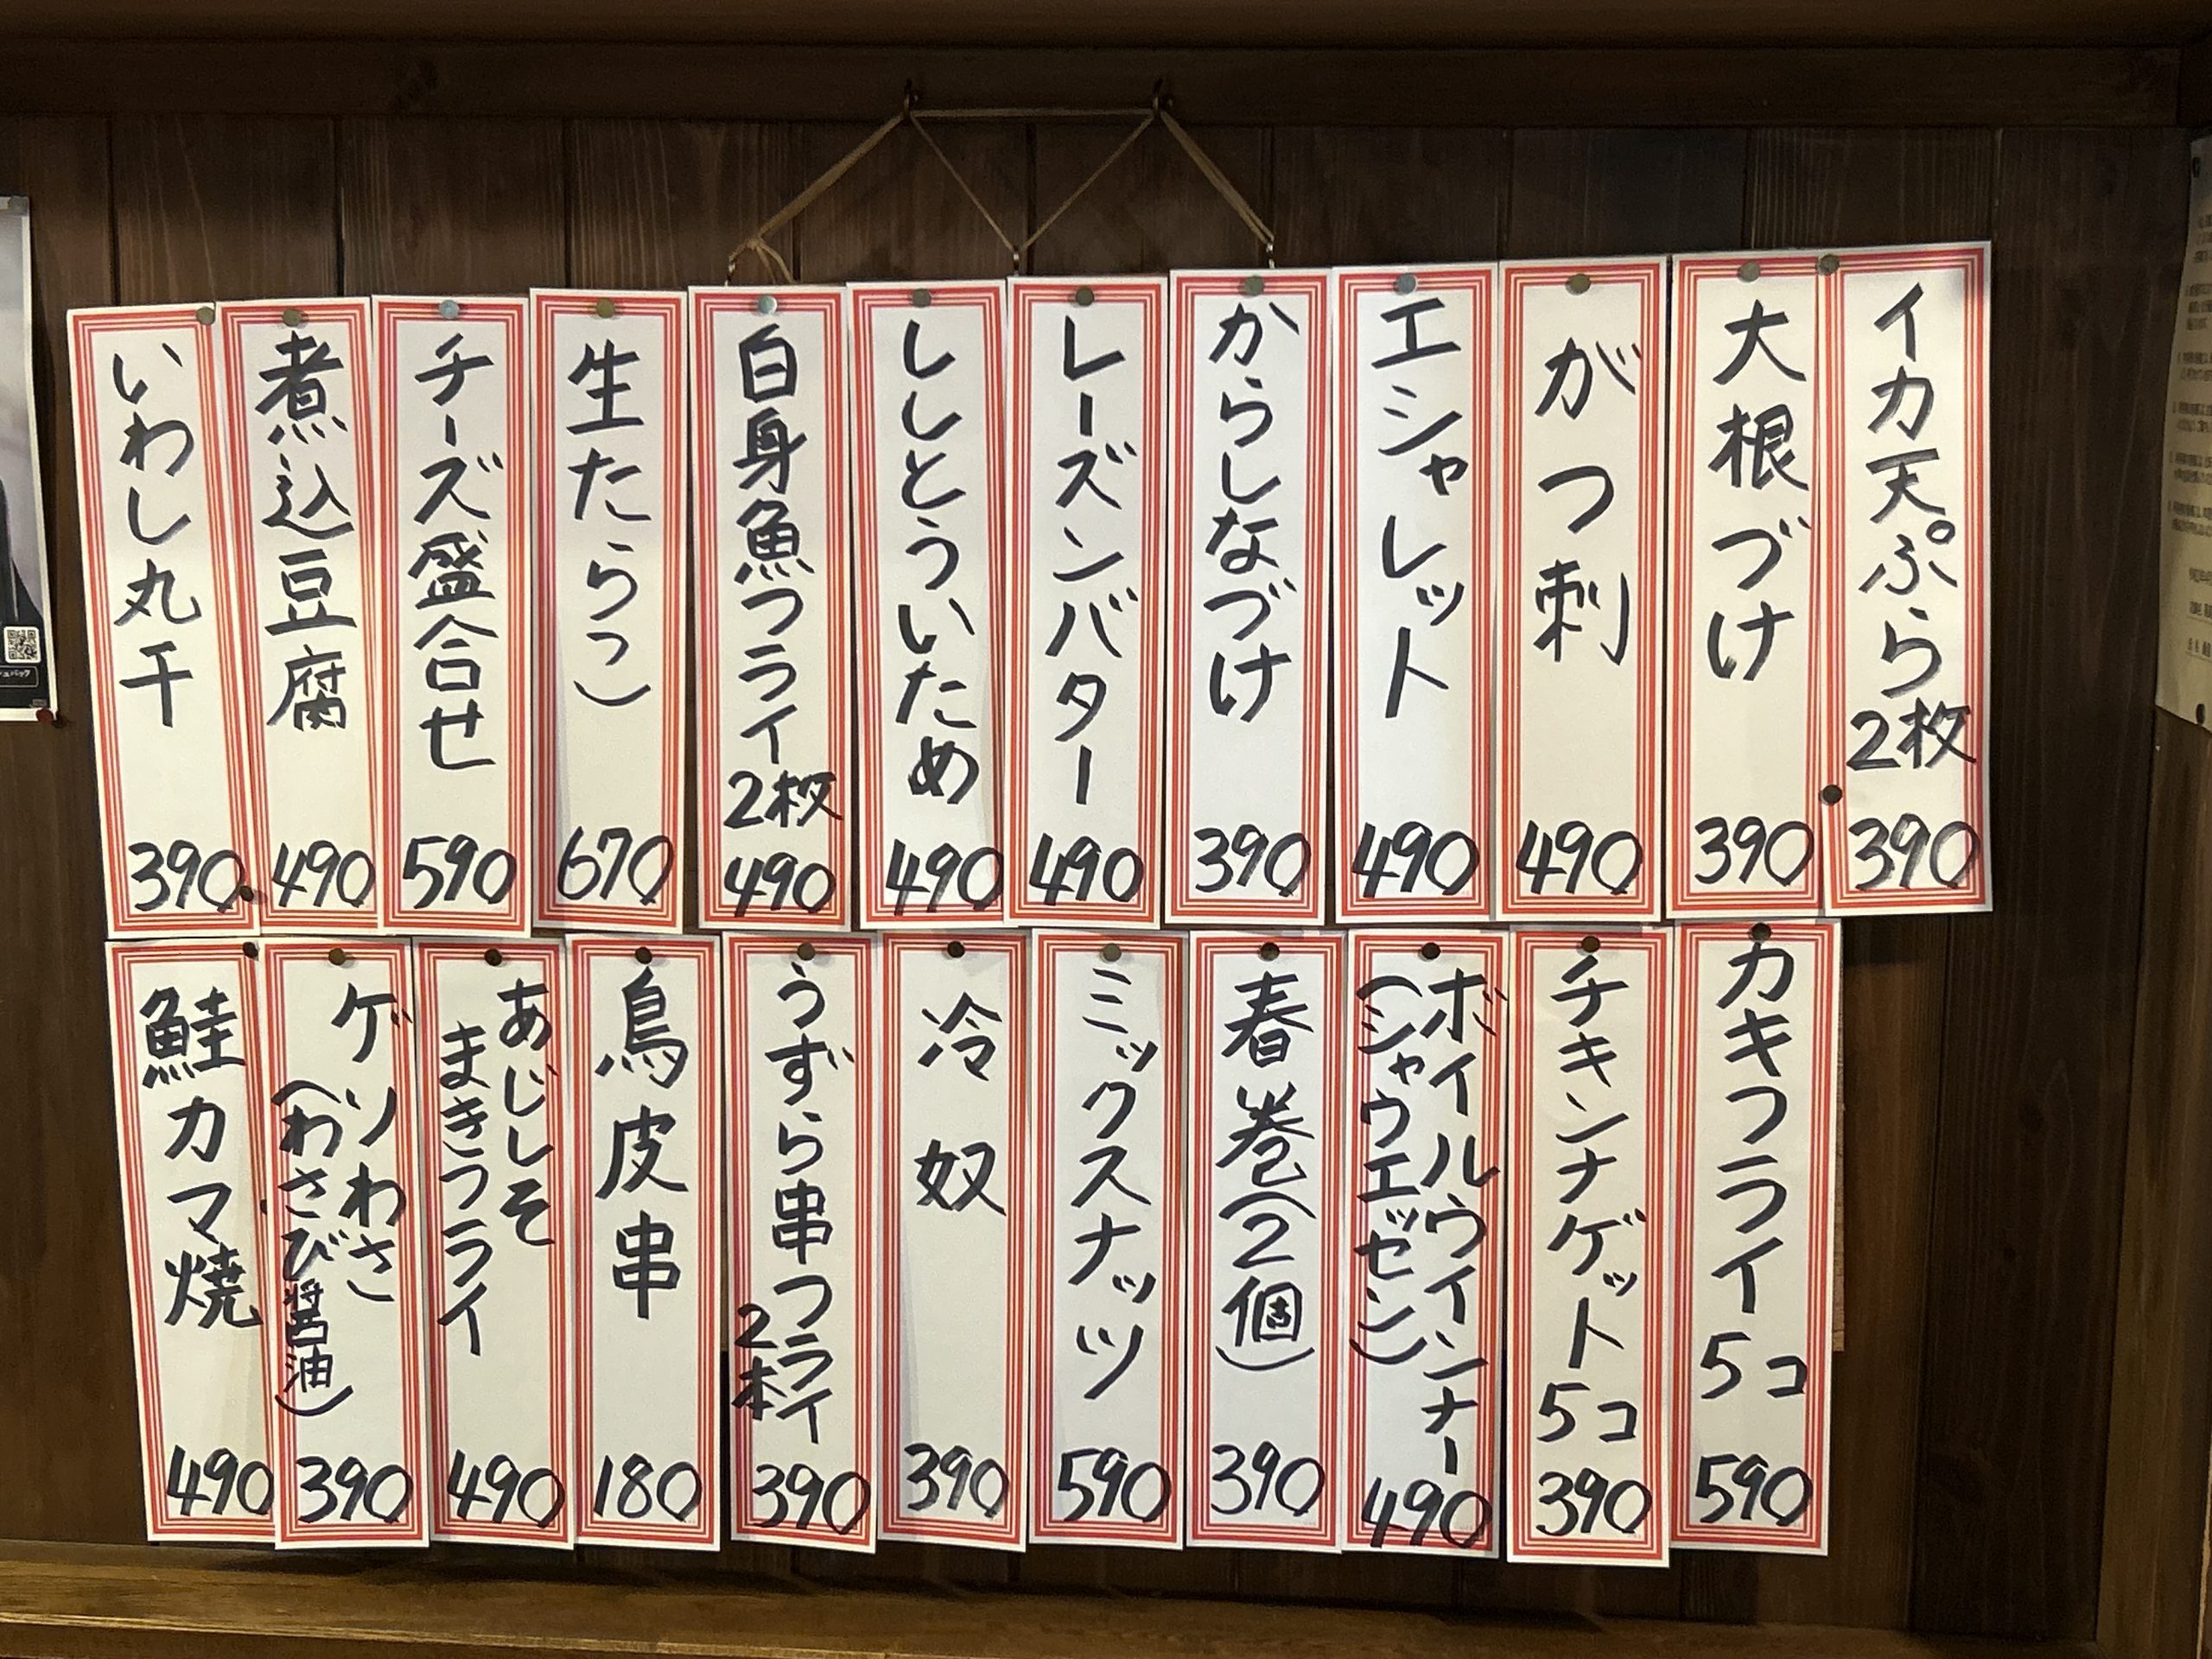 イカ天ぷら2枚
390
大根づけ
390
がつ刺
490
エシャレット
490
からしなづけ
390
レーズンバター
490
ししとういため
490
白身魚フライ
2枚
490
生たらこ
670
チーズ盛合せ
590
煮込豆腐
490
いわし丸干
390
カキフライ5コ
590
チキンナゲット
5コ
390
ボイルウインナー
(シャウエッセン)
490
春巻(2個)
390
ミックスナッツ
590
冷奴
390
うずら串フライ
2本
390
鳥皮串
180
あじしそ
まきフライ
490
ゲソわさ
(わさび醤油)
390
鮭カマ焼
490